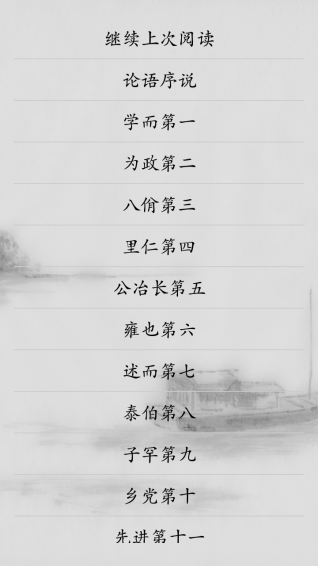 继续上次阅读
论语序说
学而第一
为政第二
八佾第三
里仁第四
公冶长第五
雍也第六
述而第七
泰伯第八
子罕第九
乡党第十
先进第十一